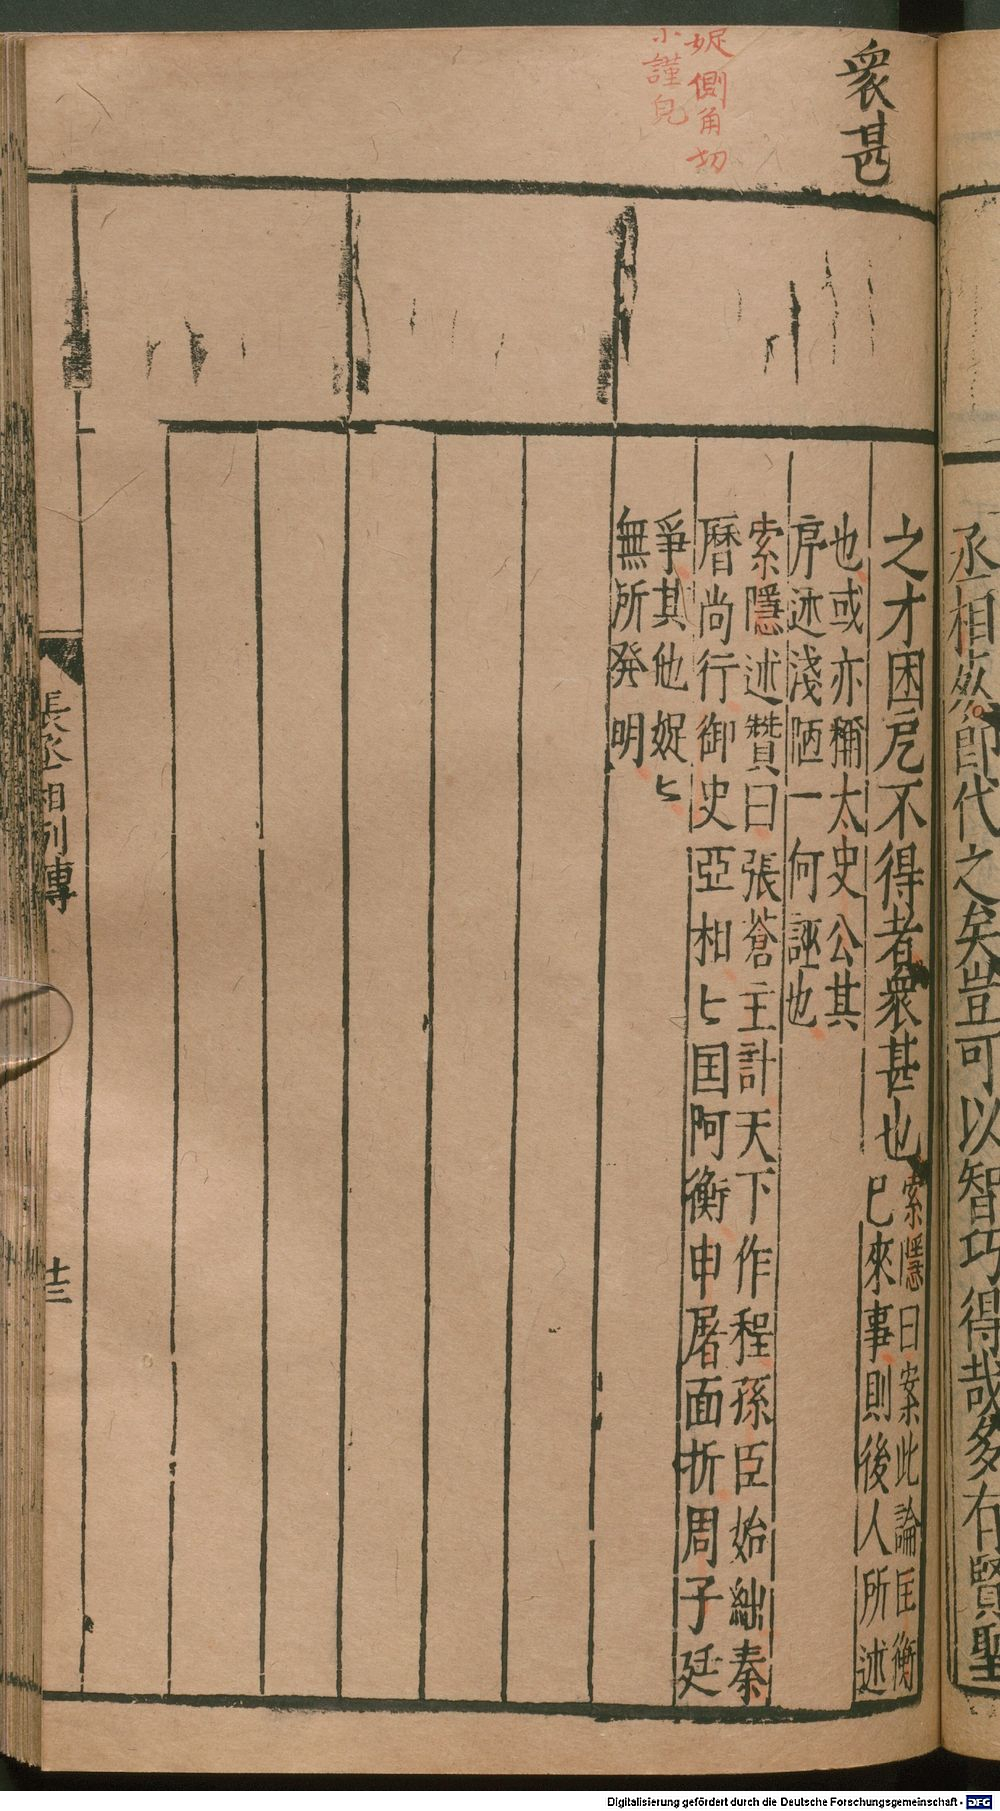 丞相即代之矣豈可以智巧得哉多有賢聖
衆甚
娖側角切
小謹皃
之才困戹不得者衆甚也
索隱曰案此論匡衡
已來事則後人所述
也或亦稱太史公其
序述淺陋一何誣也
索隱述贊曰張蒼主計天下作程孫臣始絀秦
曆尚行御史亞相匕囯阿衡申屠面折周子廷
爭其他娖匕
無所發明
張丞相列傳
十三
Digitalisierung gefördert durch die Deutsche Forschungsgemeinschaft - DFG